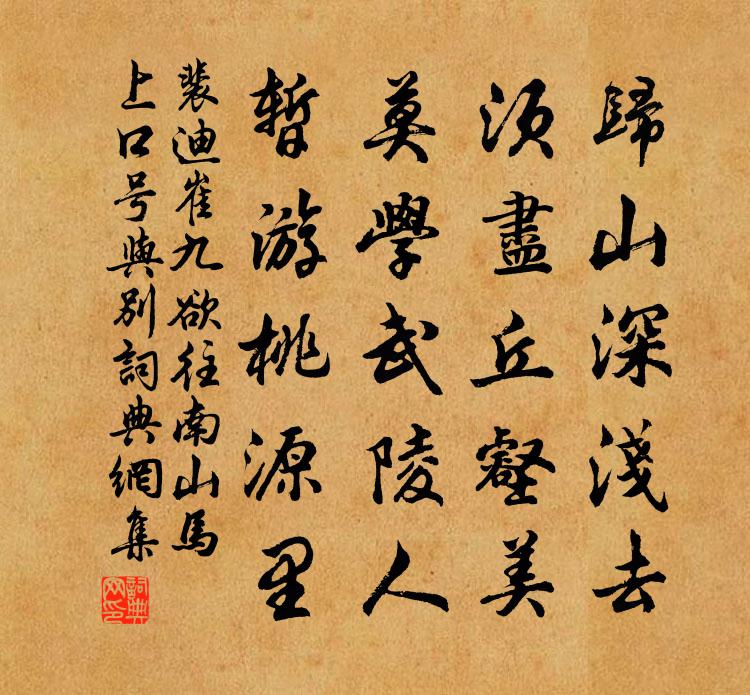 歸山深淺去
須盡丘壑美
莫學武陵人
暫游桃源里
裴迪崔九欲往南山馬
上口号與别詞典網集
詞典
网印